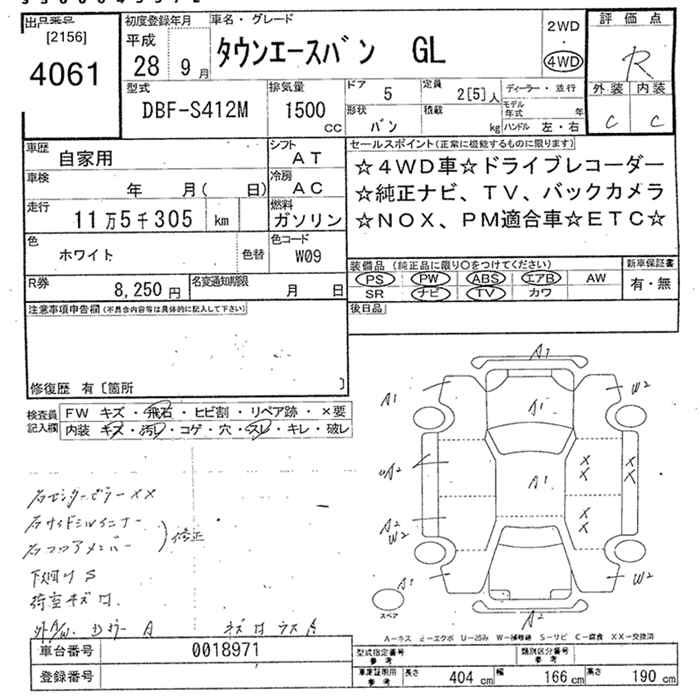 出品番号
[2156]
4061
初度登録年月
平成
28年 9月
車名・グレード
タウンエースバン GL
2WD
・
4WD
評価点
R
外装 内装
C C
型式
DBF-S412M
排気量
1500
cc
ドア 5
定員 2[5]人
形状 バン
積載 kg
ディーラー・並行
モデル年式 年
ハンドル 左・右
車歴 自家用
シフト AT
車検 年 月( 日)
冷房 AC
走行 11万5千305 km
燃料 ガソリン
色 ホワイト 色替
色コード W09
R券 8,250円
名変通知期限 月 日
セールスポイント(正常に機能するものに限ります)
☆4WD車☆ドライブレコーダー
☆純正ナビ、TV、バックカメラ
☆NOX、PM適合車☆ETC☆
装備品(純正品に限り〇をつけてください)
PS PW ABS エアB AW
SR ナビ TV カワ
新車保証書
有・無
後日品
注意事項申告欄(不具合内容等は具体的に記入して下さい)
修復歴 有〔箇所 〕
検査員記入欄
FW キズ・飛石・ヒビ割・リペア跡・×要
内装 キズ・汚れ・コゲ・穴・スレ・キレ・破レ
右センターピラーXX
右サイドシルインナー
右フロアメンバー
修正
下廻りS
荷室キズ
A1
A1
A1
W2
A1
A2
X X
X X
X X
A2
W2
A1
W2
A2
スペア
A-キズ E-エクボ U-凹み W-補修跡 S-サビ C-腐食 XX-交換済
車台番号 0018971
登録番号
型式指定番号 参考
類別区分番号 参考
車庫証明用 参考 長さ 404cm 幅 166cm 高さ 190cm